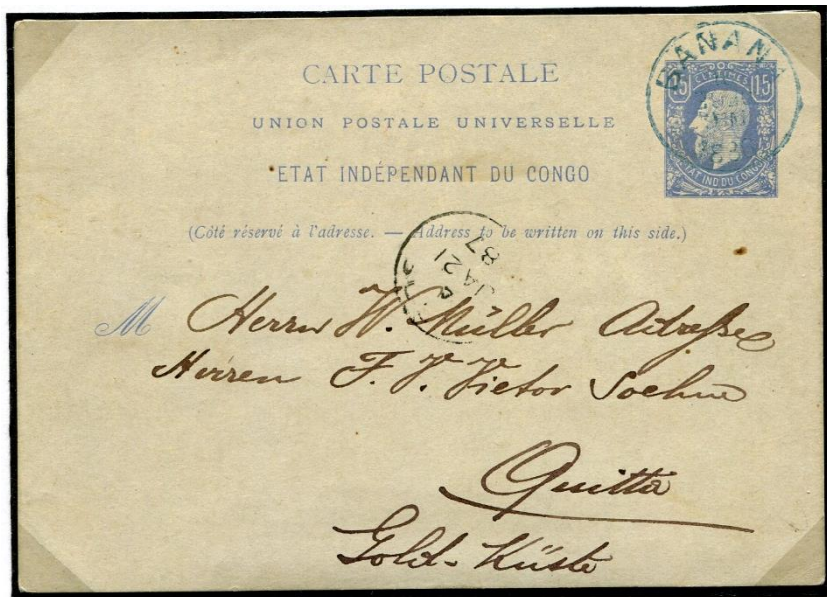 CARTE POSTALE
UNION POSTALE UNIVERSELLE
ETAT INDÉPENDANT DU CONGO
(Côté réservé à l'adresse. — Address to be written on this side.)
BANANA
CENTIMES
15 15
ETAT IND. DU CONGO
JA 21
87
M Herrn W. Müller Adresse
Herren F. V. Vietor Soehne
Quitta
Gold-Küste